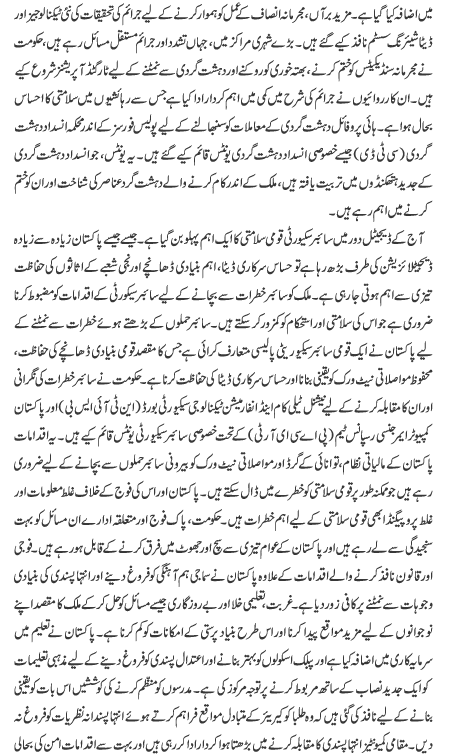 میں اضافہ کیا گیا ہے۔ مزید برآں، مجرمانہ انصاف کے عمل کو ہموار کرنے کے لیے جرائم کی تحقیقات کی نئی ٹیکنالوجیز اور
ڈیٹا شیئرنگ سسٹم نافذ کیے گئے ہیں۔ بڑے شہری مراکز میں، جہاں تشدد اور جرائم مستقل مسائل رہے ہیں، حکومت
نے مجرمانہ سنڈیکیٹس کو ختم کرنے، بھتہ خوری کو روکنے اور دہشت گردی سے نمٹنے کے لیے ٹارگٹڈ آپریشنز شروع کیے
ہیں۔ ان کارروائیوں نے جرائم کی شرح میں کمی میں اہم کردار ادا کیا ہے جس سے رہائشیوں میں سلامتی کا احساس
بحال ہوا ہے۔ ہائی پروفائل دہشت گردی کے معاملات کو سنبھالنے کے لیے پولیس فورسز کے اندر محکمہ انسداد دہشت
گردی (سی ٹی ڈی) جیسے خصوصی انسداد دہشت گردی یونٹس قائم کیے گئے ہیں۔ یہ یونٹس، جو انسداد دہشت گردی
کے جدید ہتھکنڈوں میں تربیت یافتہ ہیں، ملک کے اندر کام کرنے والے دہشت گرد عناصر کی شناخت اور ان کو ختم
کرنے میں اہم رہے ہیں۔
آج کے ڈیجیٹل دور میں سائبر سیکورٹی قومی سلامتی کا ایک اہم پہلو بن گیا ہے۔ جیسے جیسے پاکستان زیادہ سے زیادہ
ڈیجیٹلائزیشن کی طرف بڑھ رہا ہے تو حساس سرکاری ڈیٹا، اہم بنیادی ڈھانچے اور نجی شعبے کے اثاثوں کی حفاظت
تیزی سے اہم ہوتی جا رہی ہے۔ ملک کو سائبر خطرات سے بچانے کے لیے سائبر سیکورٹی کے اقدامات کو مضبوط کرنا
ضروری ہے جو اس کی سلامتی اور استحکام کو کمزور کر سکتے ہیں۔ سائبر حملوں کے بڑھتے ہوئے خطرات سے نمٹنے کے
لیے پاکستان نے ایک قومی سائبر سیکیورٹی پالیسی متعارف کرائی ہے جس کا مقصد قومی بنیادی ڈھانچے کی حفاظت،
محفوظ مواصلاتی نیٹ ورک کو یقینی بنانا اور حساس سرکاری ڈیٹا کی حفاظت کرنا ہے۔ حکومت نے سائبر خطرات کی نگرانی
اور ان کا مقابلہ کرنے کے لیے نیشنل ٹیلی کام اینڈ انفارمیشن ٹیکنالوجی سیکورٹی بورڈ (این ٹی آئی ایس بی) اور پاکستان
کمپیوٹر ایمرجنسی رسپانس ٹیم (پی اے سی ای آر ٹی) کے تحت خصوصی سائبر سیکورٹی یونٹس قائم کیے ہیں۔ یہ اقدامات
پاکستان کے مالیاتی نظام، توانائی کے گرڈ اور مواصلاتی نیٹ ورک کو بیرونی سائبر حملوں سے بچانے کے لیے ضروری
رہے ہیں جو ممکنہ طور پر قومی سلامتی کو خطرے میں ڈال سکتے ہیں۔ پاکستان اور اس کی فوج کے خلاف غلط معلومات اور
غلط پروپیگنڈا بھی قومی سلامتی کے لیے اہم خطرات ہیں۔ حکومت، پاک فوج اور متعلقہ ادارے ان مسائل کو بہت
سنجیدگی سے لے رہے ہیں اور پاکستان کے عوام تیزی سے سچ اور جھوٹ میں فرق کرنے کے قابل ہو رہے ہیں۔ فوجی
اور قانون نافذ کرنے والے اقدامات کے علاوہ پاکستان نے سماجی ہم آہنگی کو فروغ دینے اور انتہا پسندی کی بنیادی
وجوہات سے نمٹنے پر کافی زور دیا ہے۔ غربت، تعلیمی خلا اور بے روزگاری جیسے مسائل کو حل کر کے ملک کا مقصد اپنے
نوجوانوں کے لیے مزید مواقع پیدا کرنا اور اس طرح بنیاد پرستی کے امکانات کو کم کرنا ہے۔ پاکستان نے تعلیم میں
سرمایہ کاری میں اضافہ کیا ہے اور پبلک اسکولوں کو بہتر بنانے اور اعتدال پسندی کو فروغ دینے کے لیے مذہبی تعلیمات
کو ایک جدید نصاب کے ساتھ مربوط کرنے پر توجہ مرکوز کی ہے۔ مدرسوں کو منظم کرنے کی کوششیں اس بات کو یقینی
بنانے کے لیے نافذ کی گئی ہیں کہ وہ طلبا کو کیریئر کے متبادل مواقع فراہم کرتے ہوئے انتہا پسندانہ نظریات کو فروغ نہ
دیں۔ مقامی کمیونٹیز انتہا پسندی کا مقابلہ کرنے میں بڑھتا ہوا کردار ادا کر رہی ہیں اور بہت سے اقدامات امن کی بحالی